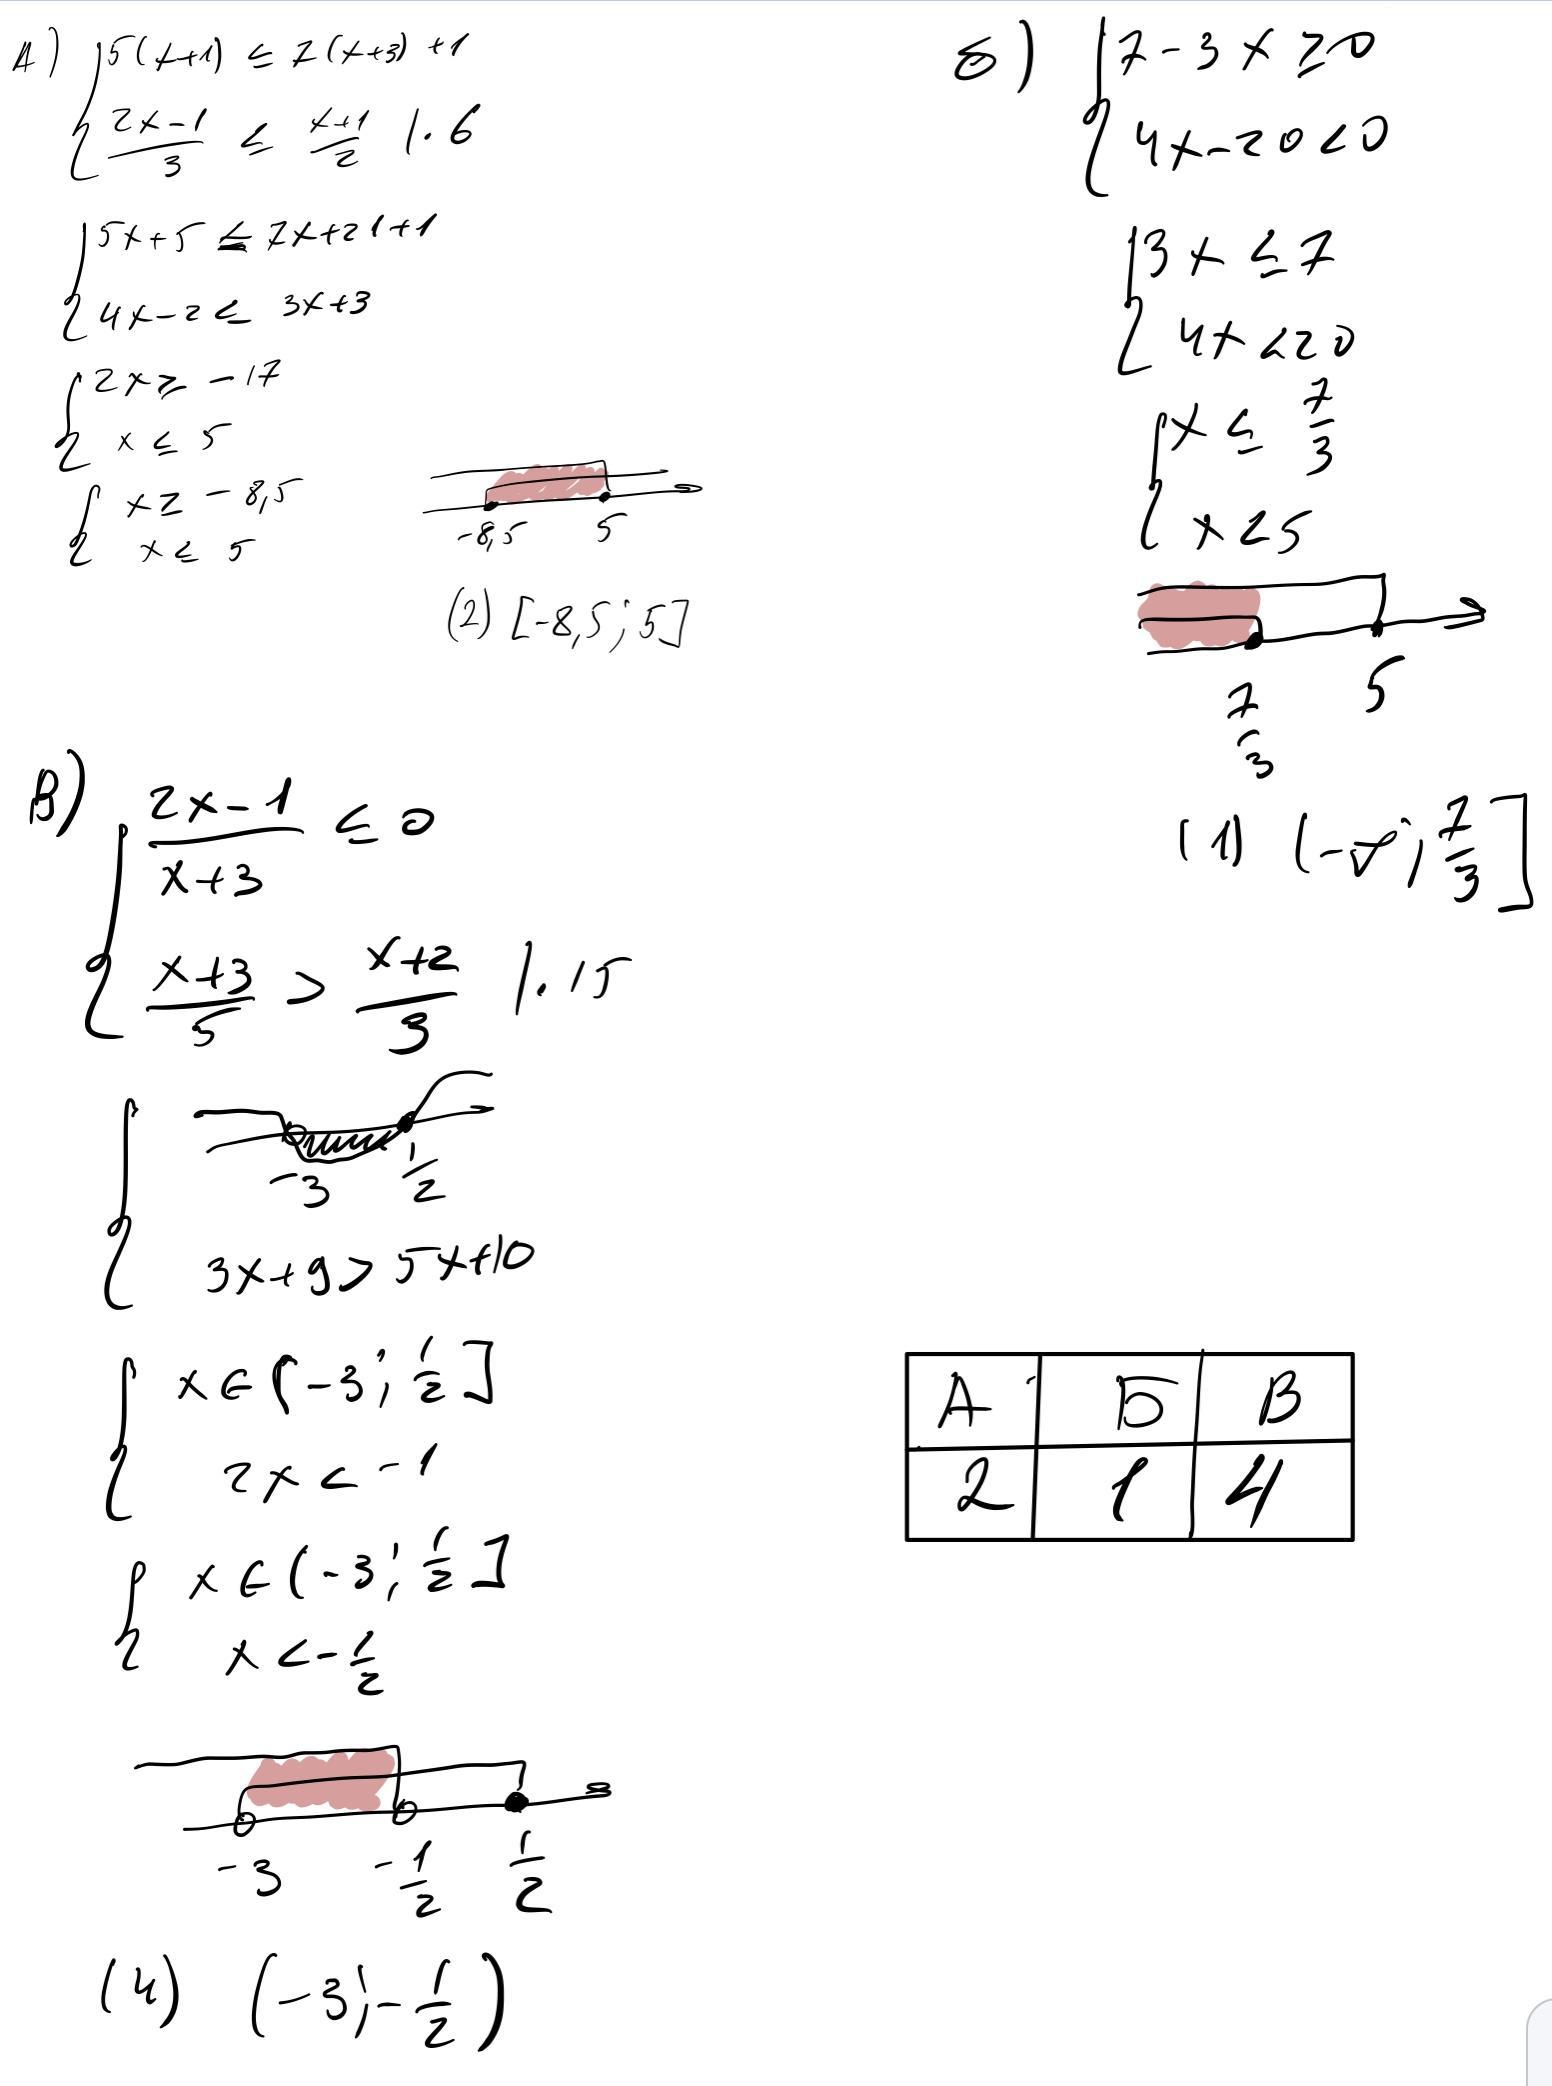 А) { 5(x+1) ≤ 7(x+3)+1
2x-1/3 ≤ x+1/2 |·6
{ 5x+5 ≤ 7x+21+1
4x-2 ≤ 3x+3
{ 2x ≥ -17
x ≤ 5
{ x ≥ -8,5
x ≤ 5
-8,5 5
(2) [-8,5; 5]
Б) { 7-3x ≥ 0
4x-20<0
{ 3x ≤ 7
4x<20
{ x ≤ 7/3
x<5
7/3 5
(1) (-∞; 7/3]
В) { 2x-1/x+3 ≤ 0
x+3/5 > x+2/3 |·15
{ -3 1/2
3x+9> 5x+10
{ x∈(-3; 1/2]
2x < -1
{ x∈(-3; 1/2]
x <-1/2
-3 -1/2 1/2
(4) (-3; -1/2)
А Б В
2 1 4